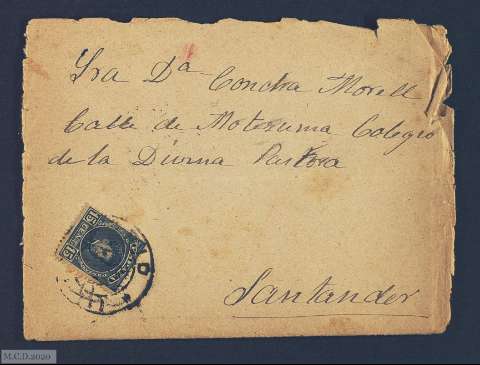 Sra Dª Concha Morell
Calle de Motezuma Colegio
de la Divina Pastora
Santander
15 CENTS 15
M.C.D.2020